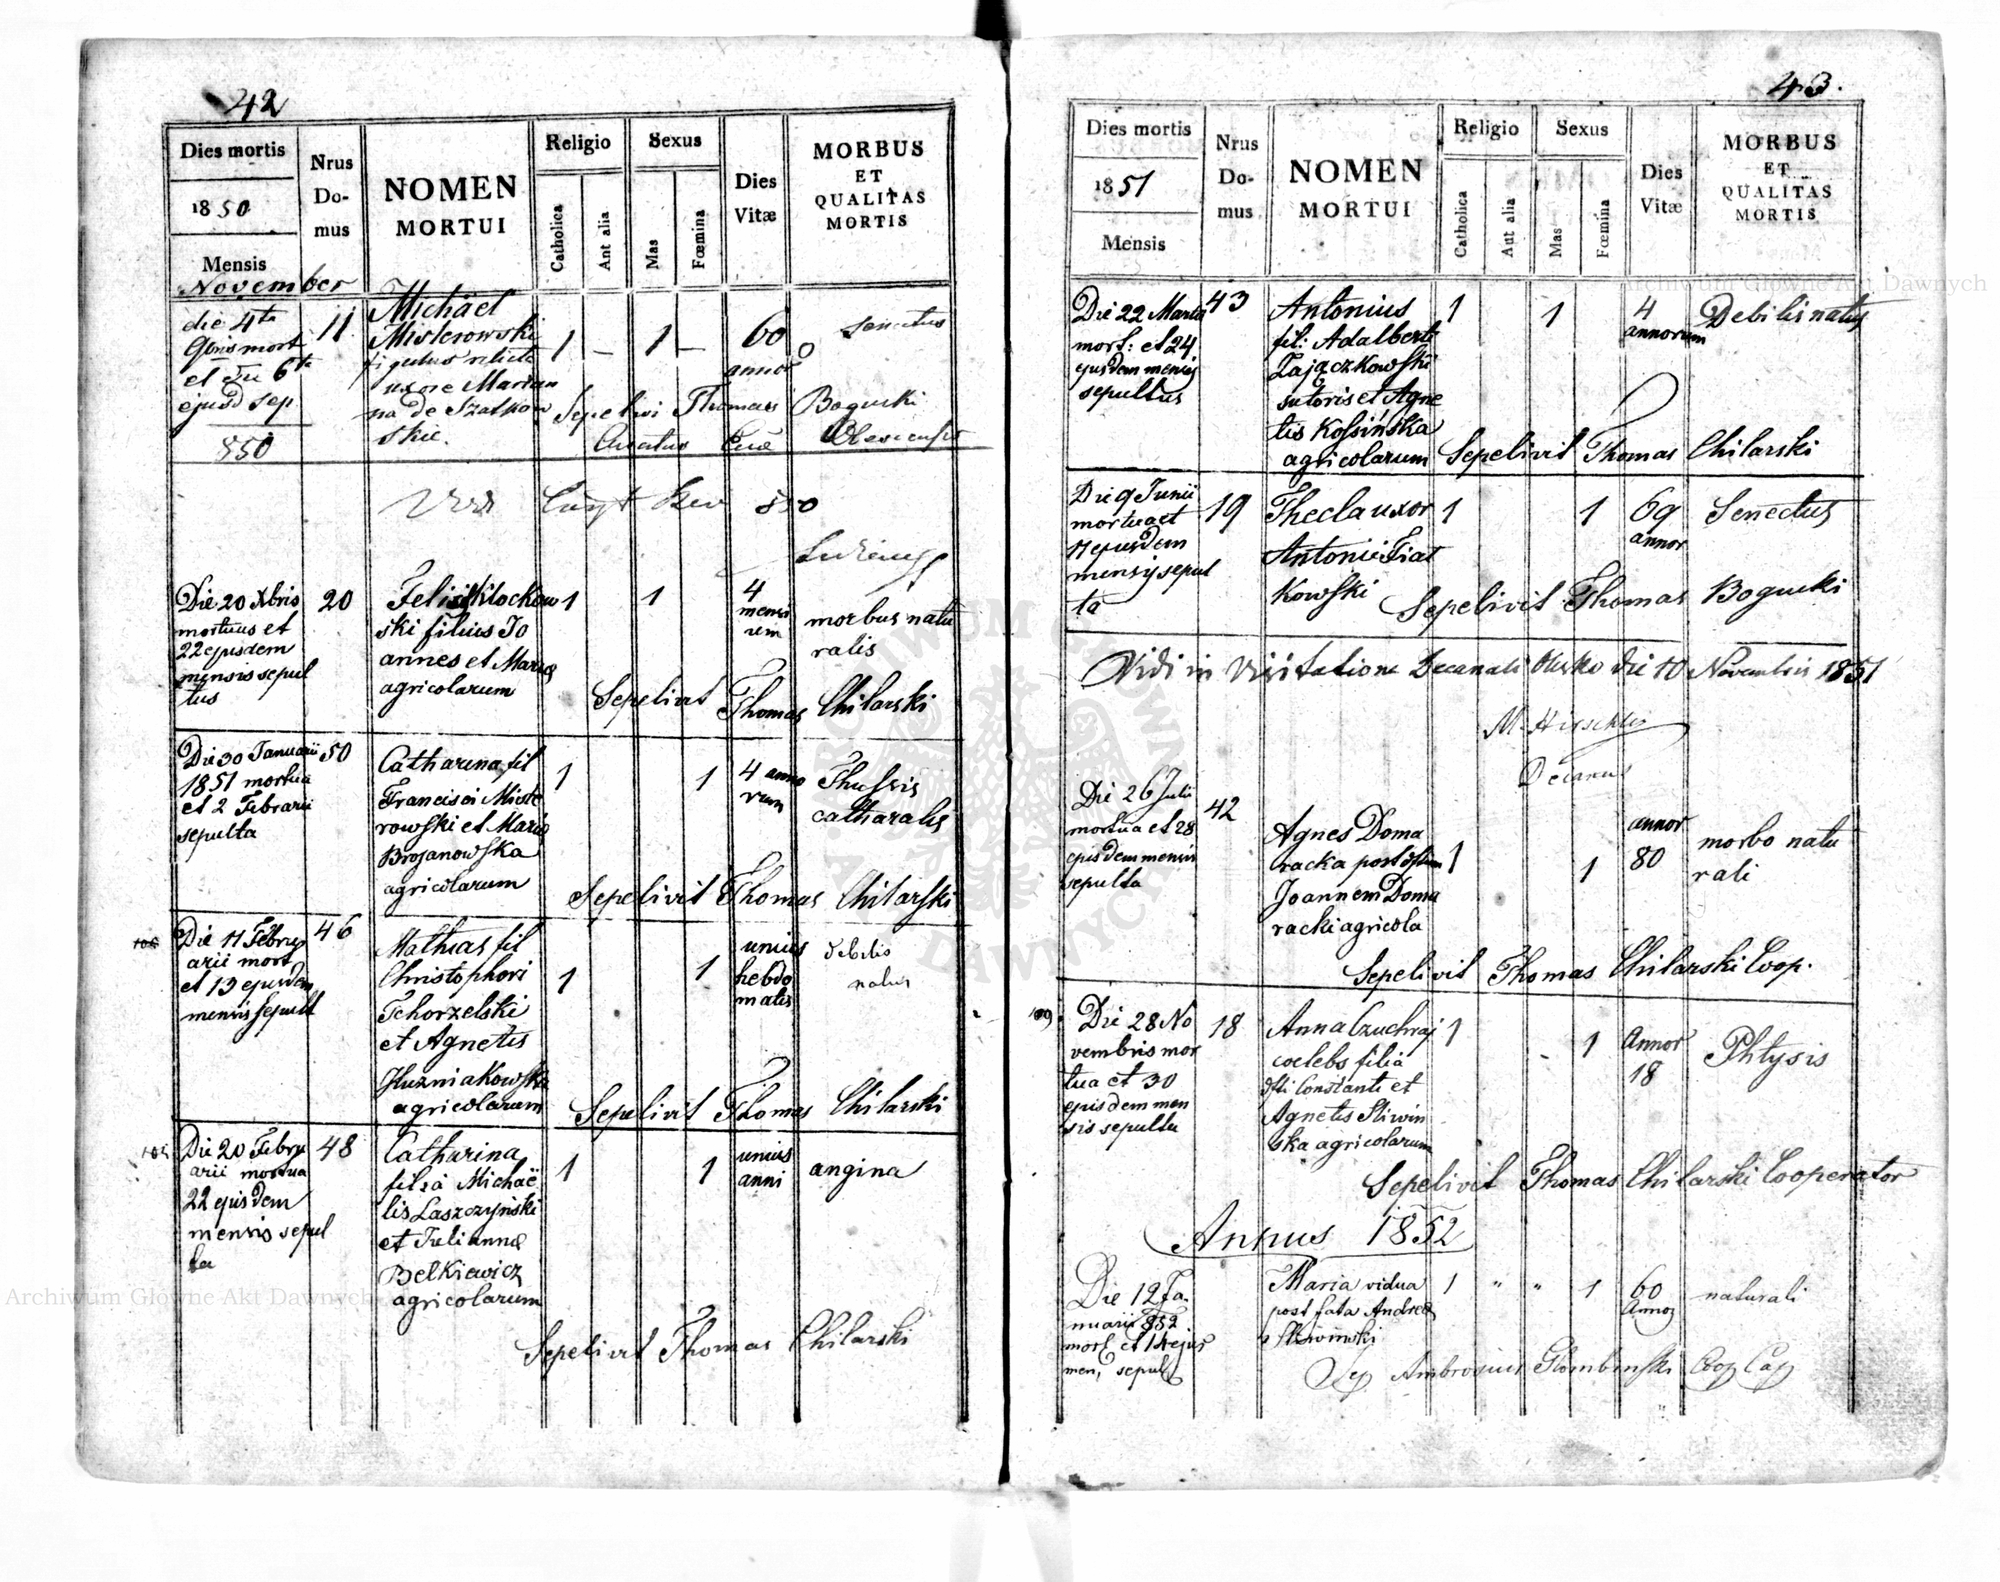 42
Dies mortis
1850
Mensis
November
Nrus Do- mus
NOMEN
MORTUI
Religio
Catholica
Aut alia
Sexus
Mas
Fœmina
Dies
Vitæ
MORBUS
ET
QUALITAS
MORTIS
die 4ta
9bris mort
et die 6ta
ejusd sep
850
11
Michael
Misterowski
figulus relicta
uxore Marian
na de Szatkow
skie.
1 — 1 —
60
annor
senectus
Sepelivi Thomas Bogucki
Curatus
850
Die 20 Xbris
mortuus et
22 ejusdem
mensis sepul
tus
20
Felix Klockow
ski filius Jo
annes et Maria
agricolarum
1 1
4
mensi
um
morbus natu
ralis
Sepelivit Thomas Chilarski
Die 30 Januarii
1851 mortua
et 2 Febrarii
sepulta
50
Catharina fil
Francisci Miste
rowski et Maria
Brojanowska
agricolarum
1 1
4 anno
rum
Thussis
catharalis
Sepelivit Thomas Chilarski
Die 11 Febru
arii mort
et 13 ejusdem
mensis sepult
46
Mathias fil
Christophori
Tchorzelski
et Agnetis
Kuzniakowska
agricolarum
1 1
unius
hebdo
matis
debilis
natus
Sepelivit Thomas Chilarski
Die 20 Febru
arii mortua
22 ejusdem
mensis sepul
ta
48
Catharina
filia Michaë
lis Laszczyński
et Julianna
Belkiewicz
agricolarum
1 1
unius
anni
angina
Sepelivit Thomas Chilarski
43.
Dies mortis
1851
Mensis
Nrus Do- mus
NOMEN
MORTUI
Religio
Catholica
Aut alia
Sexus
Mas
Fœmina
Dies
Vitæ
MORBUS
ET
QUALITAS
MORTIS
Die 22 Martii
mort: et 24
ejusdem mensis
sepultus
43
Antonius
fil: Adalberti
Zajączkowski
sutoris et Agne
tis Kosińska
agricolarum
1 1
4
annorum
Debilis natus
Sepelivit Thomas Chilarski
Die 9 Junii
mortua et
11 ejusdem
mensis sepul
ta
19
Thecla uxor
Antonii Fiat
kowski
1 1
69
annor
Senectus
Sepelivit Thomas Bogucki
Vidi in Visitatione Decanali Olesko die 10 Novembris 1851
Decanus
Die 26 Julii
mortua et 28
ejusdem mensis
sepulta
42
Agnes Doma
racka post
Joannem Doma
racki agricola
1 1
annor
80
morbo natu
rali
Sepelivit Thomas Chilarski Coop.
109.
Die 28 No
vembris mor
tua et 30
ejusdem men
sis sepulta
18
Anna Czuchraj
coelebs filia
Constanti et
Agnetis Sliwin
ska agricolarum
1 1
Annor
18
Phtysis
Sepelivit Thomas Chilarski Cooperator
Annus 1852
Die 12 Ja-
nuarii 852
mort et 14 ejus
men, sepul
Maria vidua
post fata Andreæ
Sliwinski
1 " " 1
60
Annor
naturali
Sep Ambrosius Coop
Archiwum Główne Akt Dawnych
Archiwum Główne Akt Dawnych
ARCHIWUM GŁÓWNE AKT DAWNYCH